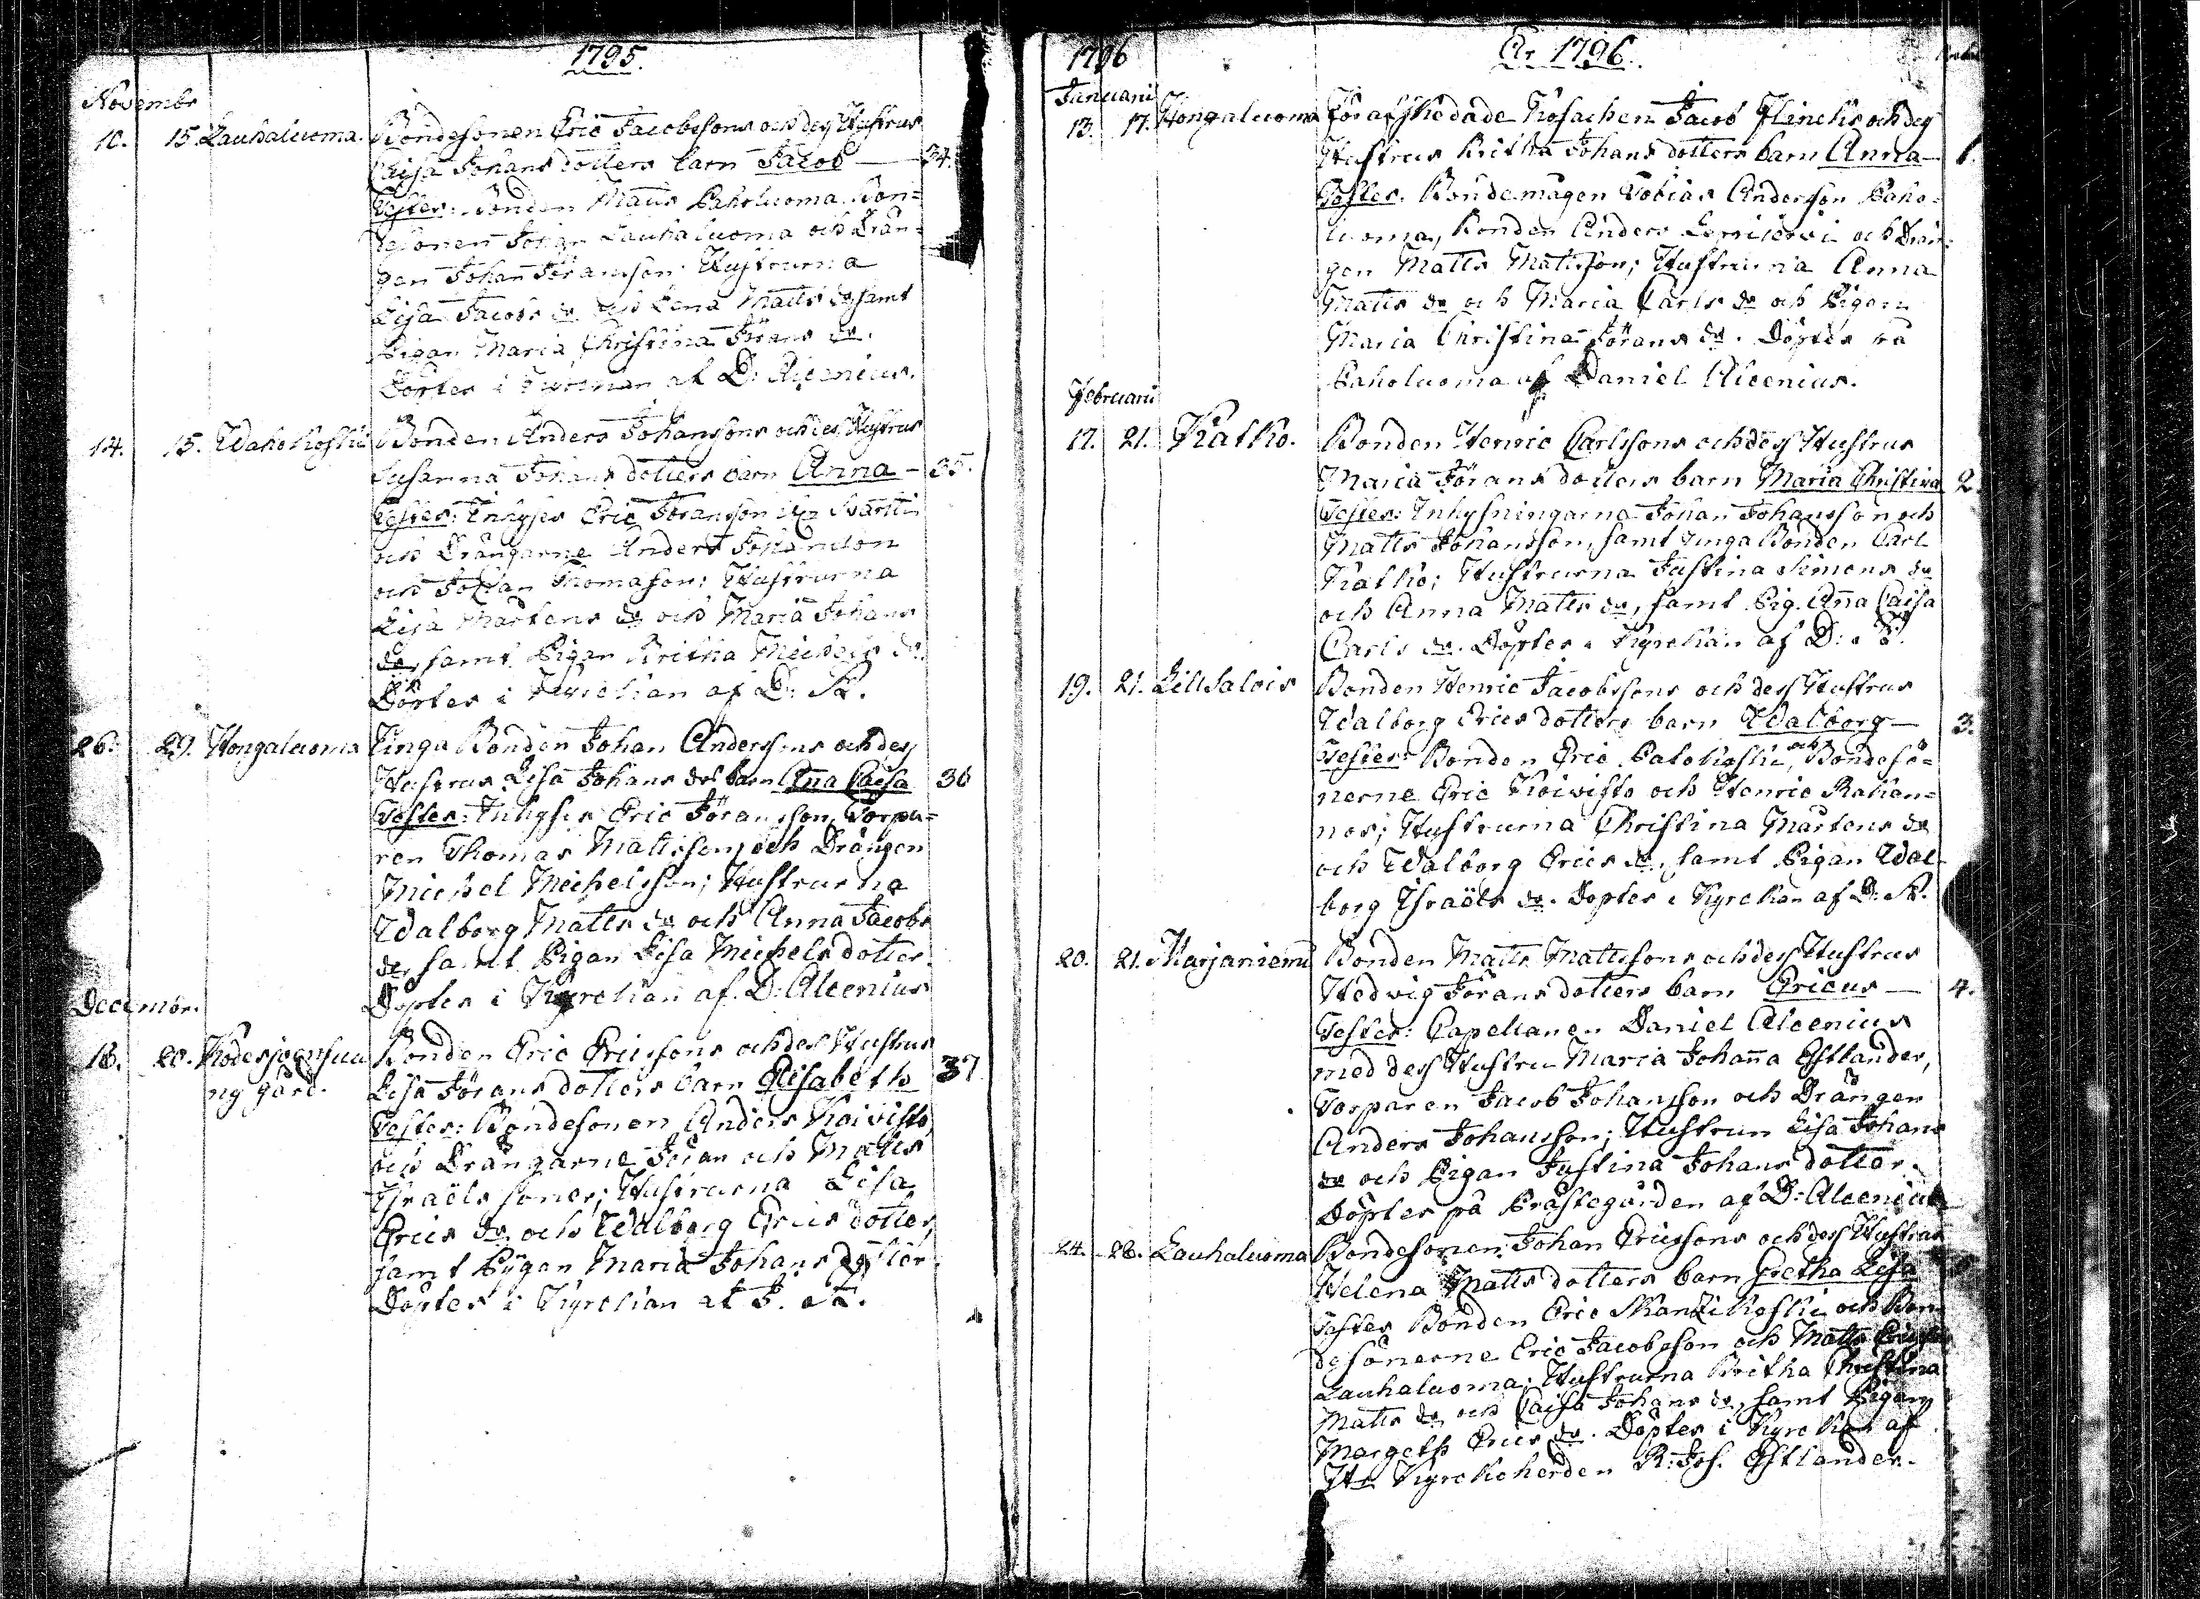 1795.
Novembr
10. 15. Lauhaluoma. Bondesonen Eric Jacobssons och dess Hustrus
Caisa Johans dotters barn Jacob — 34.
Tester: Bonden Matts Paholuoma, Bon=
desonen Johan Lauhaluoma och Drän=
gen Johan Jöransson; Hustrurna
Lisa Jacobs dr och Lena Matts dr samt
Pigan Maria Christina Jörans dr.
Döptes i Kyrckan af D. Alcenius.
14. 15. Wahokoski Bonden Anders Johanssons och dess Hustrus
Susanna Johans dotters barn Anna — 35.
Tester: Inhyses Eric Jöransson
och Drängarne Anders Johansson
och Johan Thomasson; Hustrurna
Lisa Mårtens dr och Maria Johans
dr, samt Pigan Britha Michels dr.
Döptes i Kyrckan af D. A.
26. 29. Hongaluoma Unga Bonden Johan Anderssons och dess
Hustrus Lisa Johans drs barn Aña Caisa 36
Tester: Inhyses Eric Jöransson, Torpa=
ren Thomas Mattsson, och Drängen
Michel Michelsson; Hustrurna
Walborg Matts dr och Anna Jacobs
dr, samt Pigan Lisa Michels dotter.
Döptes i Kyrckan af D. Alcenius
Decembr.
18. 20. Kodesjoensuu Bonden Eric Ericssons och dess Hustrus
ny gård. Lisa Jörans dotters barn Elisabeth 37
Tester: Bondesonen Anders Koivisto
och Drängarne Johan och Matts
Israëls söner; Hustrurna Lisa
Erics dr och Walborg Erics dotter,
samt Pigan Maria Johans dotter.
Döptes i Kyrckan af D. A.
1796
År 1796.
Januarii
13. 17. Hongaluoma För afskedade Kosacken Jacob Flincks och dess
Hustrus Britha Johans dotters barn Anna — 1.
Tester. Bondemågen Tobias Andersson Paho=
luoma, Bonden Anders och Drän=
gen Matts Mattsson; Hustrurna Anna
Matts dr och Maria Carls dr och Pigan
Maria Christina Jörans dr. Döptes på
Paholuoma af Daniel Alcenius.
Februarii
17. 21. Katko. Bonden Henric Carlssons och dess Hustrus
Maria Jörans dotters barn Maria Christina 2.
Tester: Inhysningarna Johan Johansson och
Matts Johansson, samt unga Bonden Carl
Katko; Hustrurna Justina Simons dr
och Anna Matts dr, samt Pig. Aña Caisa
Carls dr. Döptes i Kyrckan af D. A.
19. 21. Lill Salois Bonden Henric Jacobssons och dess Hustrus
Walborg Erics dotters barn Walborg — 3.
Tester: Bonden Eric Palokoski, och Bondesö=
nerne Eric Koivisto och Henric Rahien=
nos; Hustrurna Christina Mårtens dr
och Walborg Erics dr, samt Pigan Wal=
borg Israëls dr. Döptes i Kyrckan af D. A.
20. 21. Marjaniemi Bonden Matts Mattssons och dess Hustrus
Hedwig Jörans dotters barn Ericus — 4.
Tester: Capellanen Daniel Alcenius
med dess Hustru Maria Johaña Estlander,
Torparen Jacob Johansson och Drängen
Anders Johansson; Hustrun Lisa Johans
dr och Pigan Justina Johans dotter.
Döptes på Prästegården af D. Alcenius
24. 28. Lauhaluoma Bondesonen Johan Ericssons och dess Hustrus
Helena Matts dotters barn Gretha Lisa
Tester Bonden Eric och Bon=
desönerne Eric Jacobsson och Matts Ericsson
Lauhaluoma; Hustrurna Britha Christina
Matts dr och Caisa Johans dr, samt Pigan
Margeth Erics dr. Döptes i Kyrckan af
Hr Kyrckoherden R. Jos. Estlander.